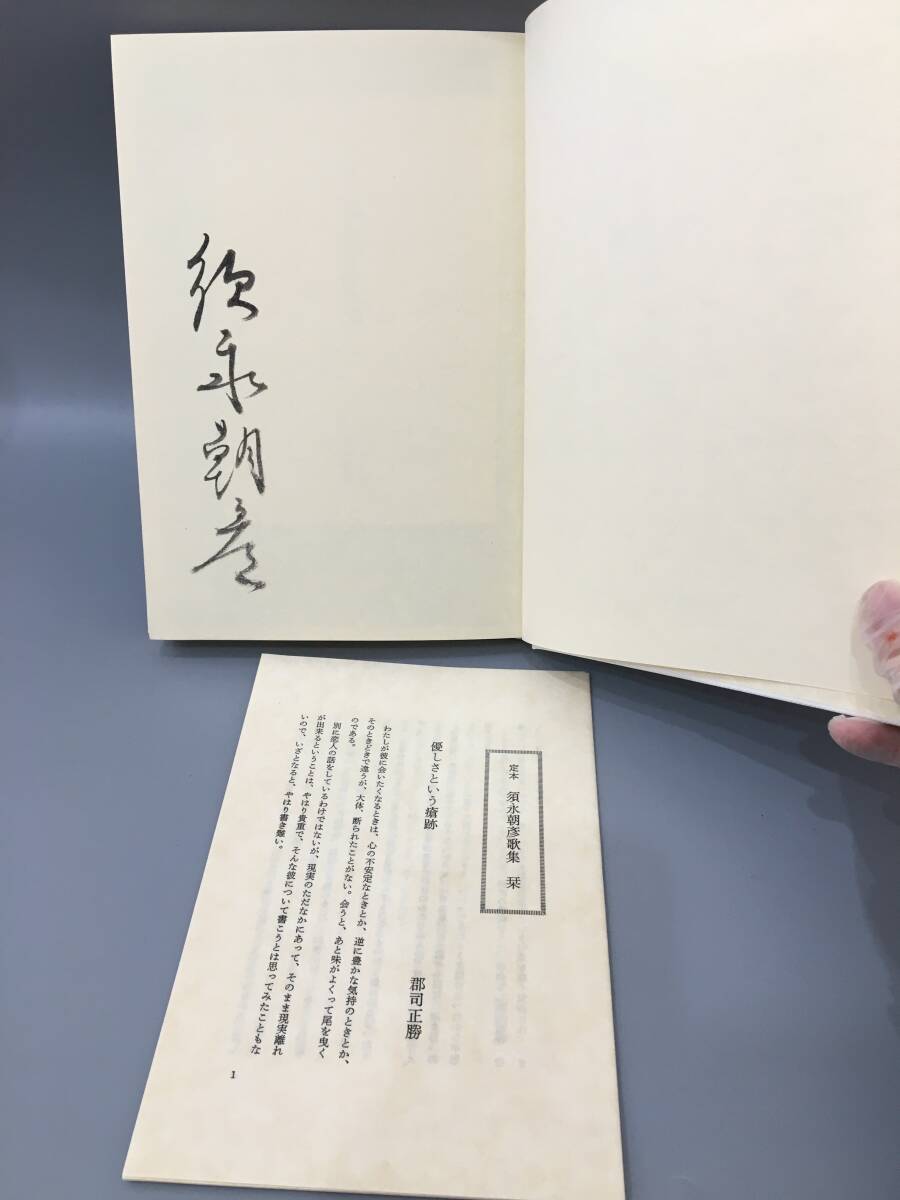 須永朝彦
定本 須永朝彦歌集 栞
優しさという瘡跡
郡司正勝
わたしが彼に会いたくなるときは、心の不安定なときとか、逆に豊かな気持のときとか、
そのときどきで違うが、大体、断られたことがない。会うと、あと味がよくって尾を曳く
のである。
別に恋人の話をしているわけではないが、現実のただなかにあって、そのまま現実離れ
が出来るということは、やはり貴重で、そんな彼について書こうとは思ってみたこともな
いので、いざとなると、やはり書き難い。
1